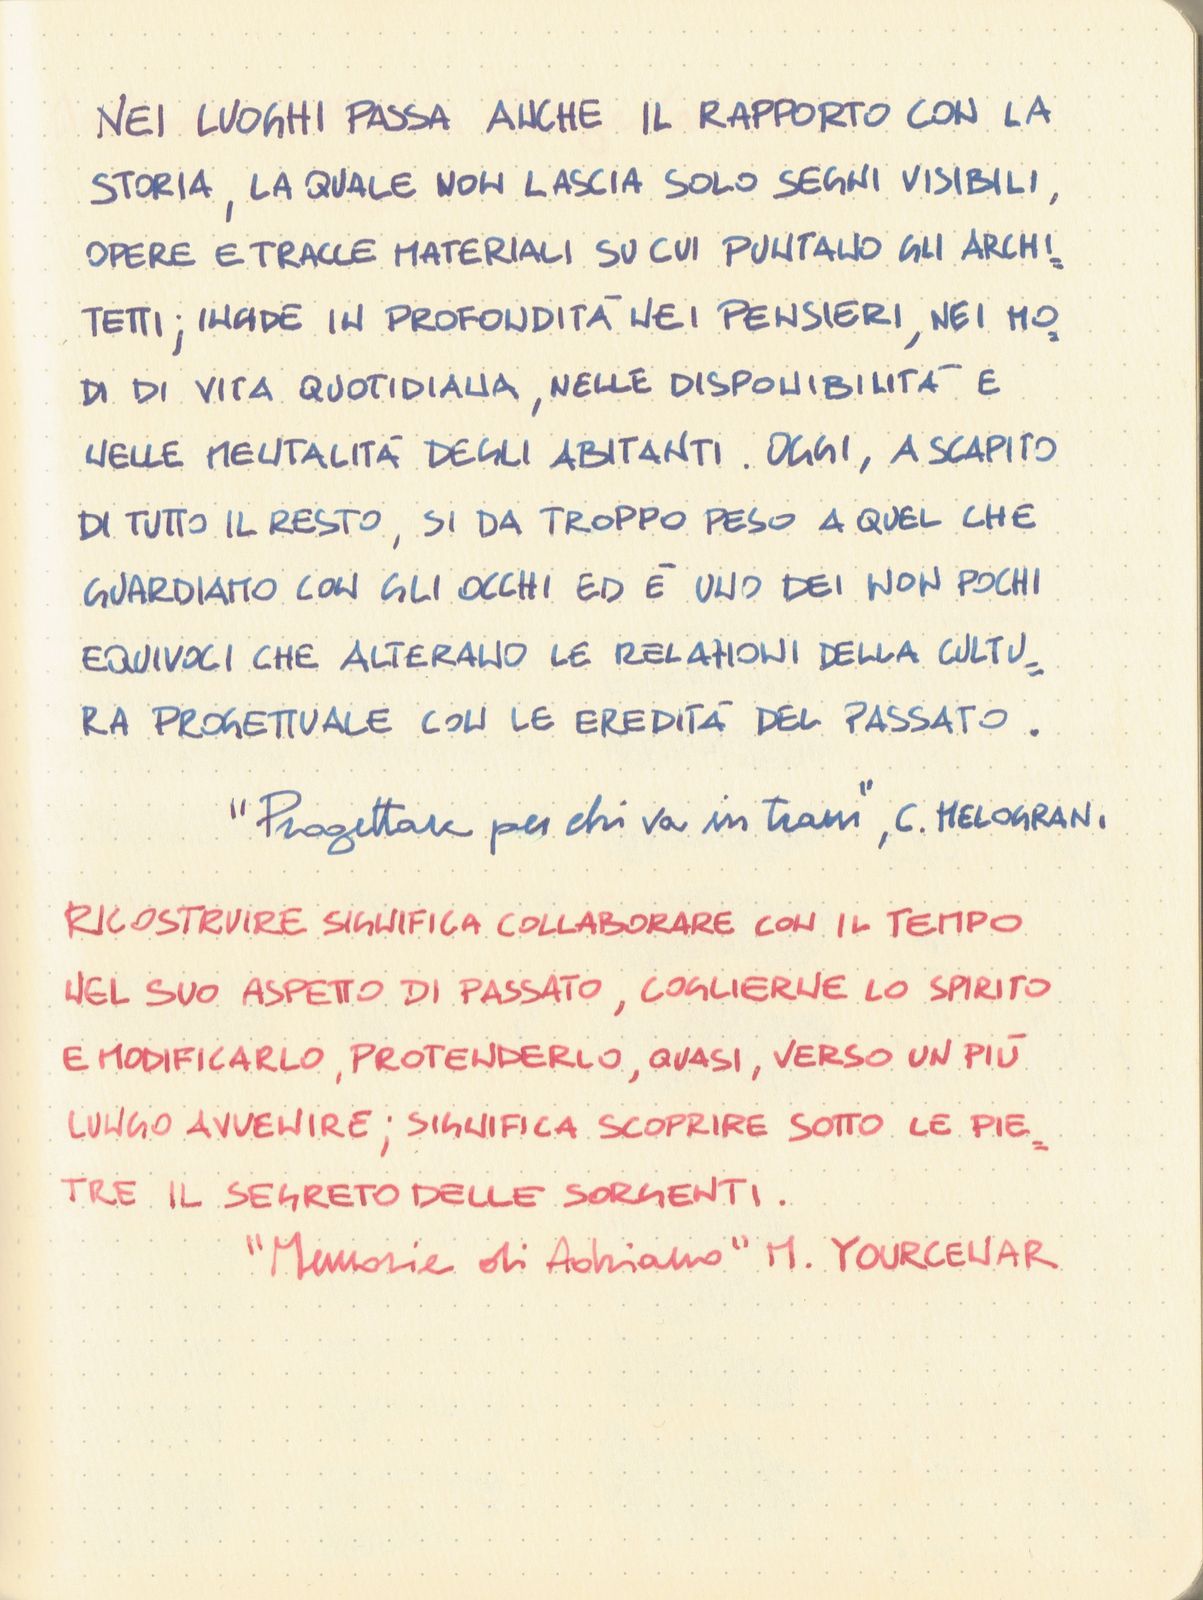 NEI LUOGHI PASSA ANCHE IL RAPPORTO CON LA
STORIA, LA QUALE NON LASCIA SOLO SEGNI VISIBILI,
OPERE E TRACCE MATERIALI SU CUI PUNTANO GLI ARCHI=
TETTI; INCIDE IN PROFONDITÀ NEI PENSIERI, NEI MO=
DI DI VITA QUOTIDIANA, NELLE DISPONIBILITÀ E
NELLE MENTALITÀ DEGLI ABITANTI. OGGI, A SCAPITO
DI TUTTO IL RESTO, SI DA TROPPO PESO A QUEL CHE
GUARDIAMO CON GLI OCCHI ED È UNO DEI NON POCHI
EQUIVOCI CHE ALTERANO LE RELAZIONI DELLA CULTU=
RA PROGETTUALE CON LE EREDITÀ DEL PASSATO.
"Progettare per chi va in tram", C. MELOGRANI
RICOSTRUIRE SIGNIFICA COLLABORARE CON IL TEMPO
NEL SUO ASPETTO DI PASSATO, COGLIERNE LO SPIRITO
E MODIFICARLO, PROTENDERLO, QUASI, VERSO UN PIÙ
LUNGO AVVENIRE; SIGNIFICA SCOPRIRE SOTTO LE PIE=
TRE IL SEGRETO DELLE SORGENTI.
"Memorie di Adriano" M. YOURCENAR